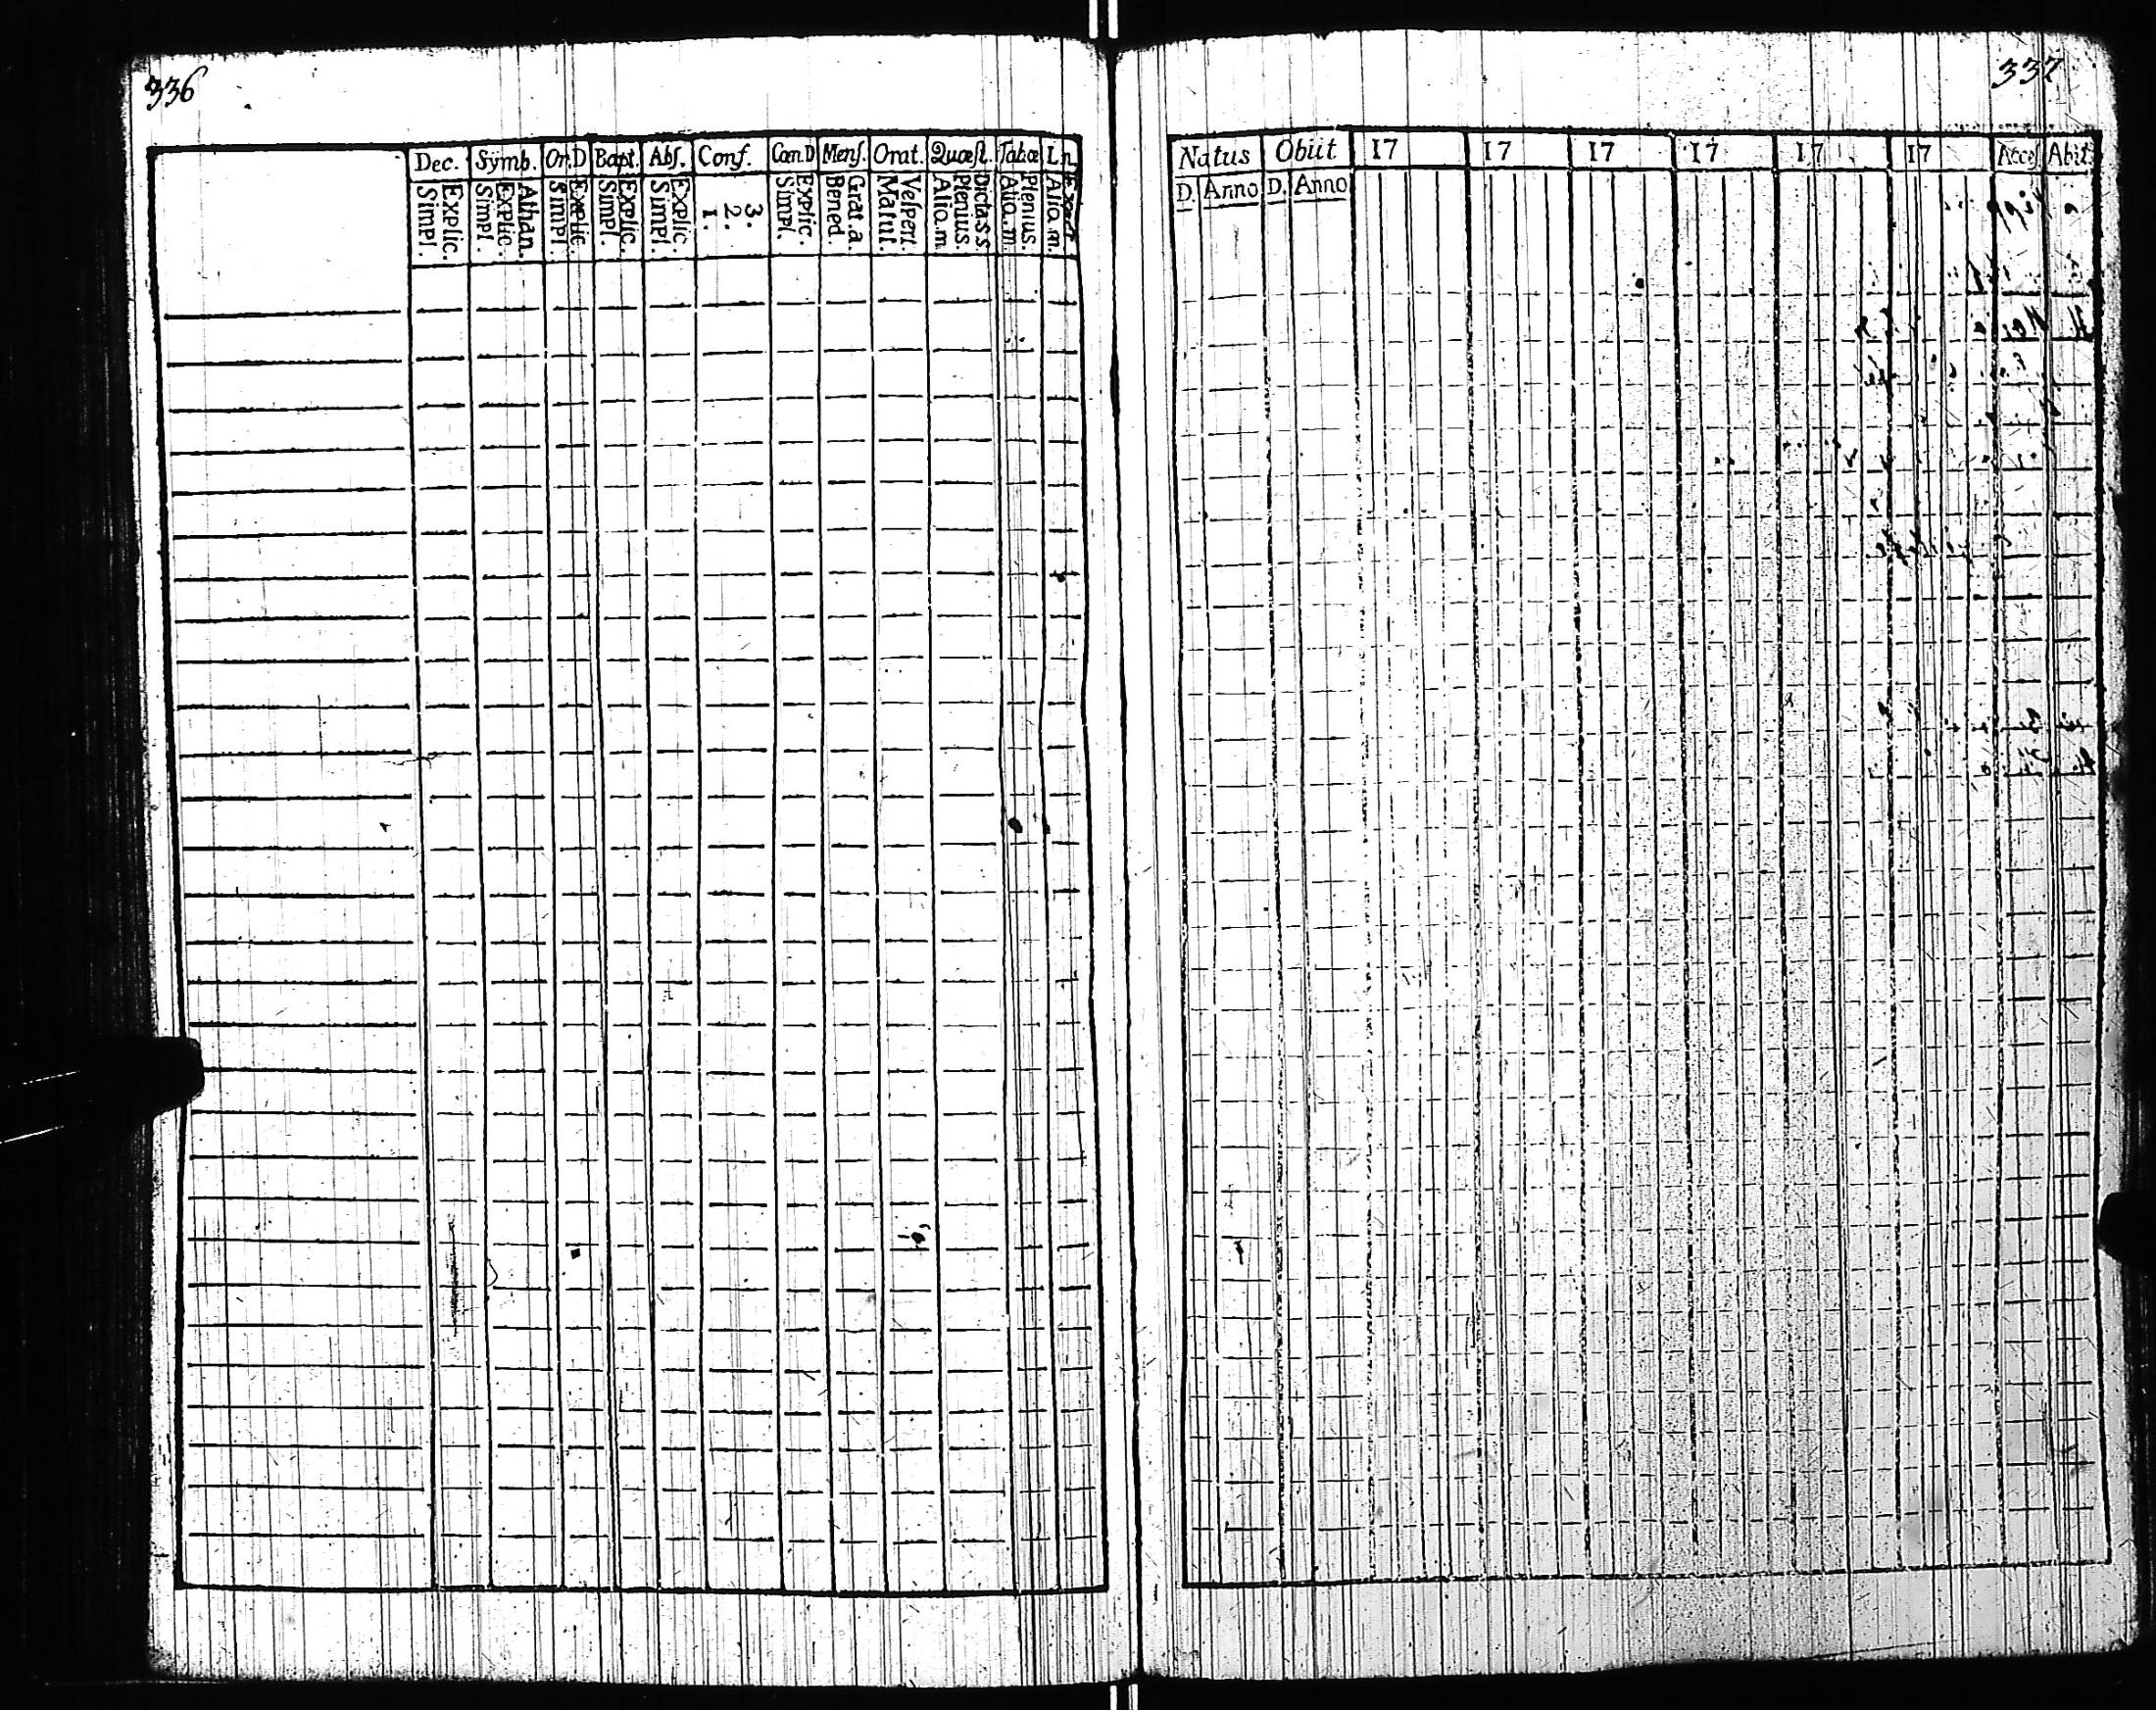 336
Dec. Symb. Or. D Bapt. Abſ. Conf. Cœn. D Menſ. Orat. Quæſt. Tabœ L.n.
Explic. Simpl. Athan. Explic. Simpl. Explic. Simpl. Explic. Simpl. Explic. Simpl. 3. 2. 1. Explic. Simpl. Grat. a Bened. Veſpert. Matut. Dicta. s. s. Plenius. Alio. m. Plenius. Alio. m. Exact Alio. m.
337
Natus Obiit 17 17 17 17 17 17 Acceſ Abiit.
D. Anno D. Anno